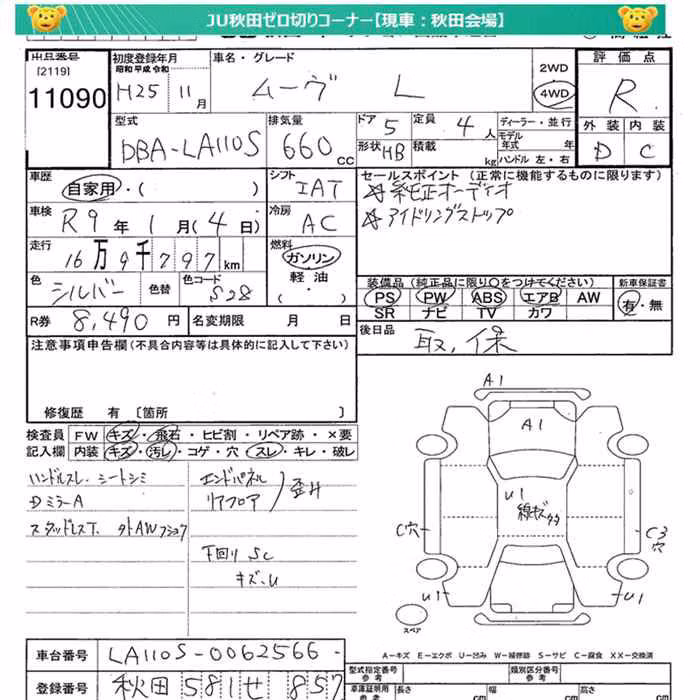 JU秋田ゼロ切りコーナー【現車：秋田会場】
出品番号
[2119]
11090
初度登録年月
昭和 平成 令和
H25 11月
車名・グレード
ムーヴ L
2WD
4WD
評価点
R
外装 内装
D C
型式
DBA-LA110S
排気量
660 cc
ドア 5
定員 4人
形状 HB
積載 kg
ディーラー・並行
モデル年式 年
ハンドル 左・右
車歴
自家用・( )
シフト
IAT
セールスポイント (正常に機能するものに限ります)
☆純正オーディオ
☆アイドリングストップ
車検
R9年1月(4日)
冷房
AC
走行
16万9千797km
燃料
ガソリン
軽油
・( )
色
シルバー
色替
色コード
S28
装備品 (純正品に限り○をつけてください)
PS PW ABS エアB AW
SR ナビ TV カワ
新車保証書
有・無
R券 8,490円
名変期限 月 日
後日品
取,保
注意事項申告欄(不具合内容等は具体的に記入して下さい)
修復歴 有 〔箇所 〕
検査員
記入欄
FW キズ・飛石・ヒビ割・リペア跡・×要
内装 キズ・汚レ・コゲ・穴・スレ・キレ・破レ
ハンドルスレ、シートシミ
DミラーA
スタッドレスT、外AWフショウ
エンドパネル
リアフロア
歪井
下回り SC
キズ、U
A1
A1
U1
線キズ多々
C穴
C3
穴
U1
U1
スペア
A-キズ E-エクボ U-凹み W-補修跡 S-サビ C-腐食 XX-交換済
車台番号 LA110S-0062566-
登録番号 秋田 581せ 857
型式指定番号
参考
類別区分番号
車庫証明用
参考
長さ cm
幅 cm
高さ cm